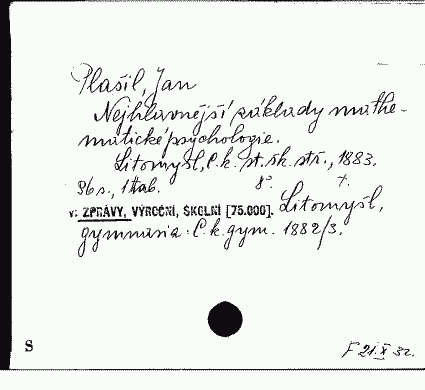 Plašil, Jan
Nejhlavnější základy mathe-
matické psychologie.
Litomyšl, C. k. st. sk. stř., 1883.
36 s., 1 tab. 8°. +.
v: ZPRÁVY, VÝROČNÍ, ŠKOLNÍ [75.000]. Litomyšl,
gymnasia: C. k. gym. 1882/3.
S
F 21.X 32.